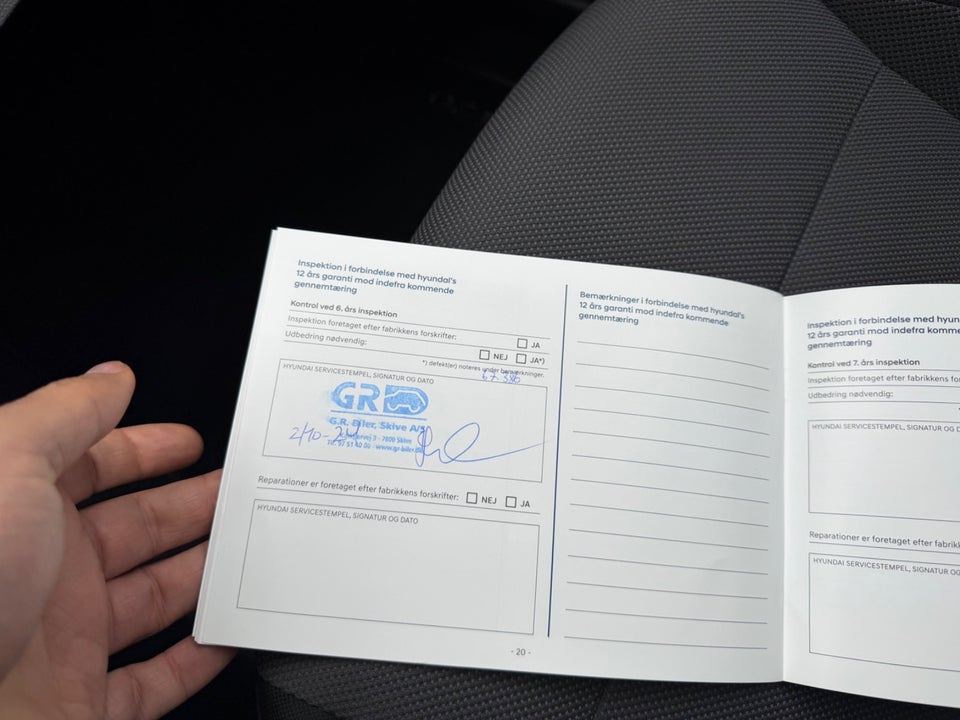 Inspektion i forbindelse med hyundai's
12 års garanti mod indefra kommende
gennemtæring
Kontrol ved 6. års inspektion
Inspektion foretaget efter fabrikkens forskrifter: JA
Udbedring nødvendig: NEJ JA*)
*) defekt(er) noteres under bemærkninger.
HYUNDAI SERVICESTEMPEL, SIGNATUR OG DATO
GR
G.R. Biler, Skive A/S
2/10-24
3 - 7800 Skive
www.gr-biler.dk
Reparationer er foretaget efter fabrikkens forskrifter: NEJ JA
HYUNDAI SERVICESTEMPEL, SIGNATUR OG DATO
- 20 -
Bemærkninger i forbindelse med hyundai's
12 års garanti mod indefra kommende
gennemtæring
Inspektion i forbindelse med hyun
12 års garanti mod indefra komme
gennemtæring
Kontrol ved 7. års inspektion
Inspektion foretaget efter fabrikkens fo
Udbedring nødvendig:
HYUNDAI SERVICESTEMPEL, SIGNATUR OG D
Reparationer er foretaget efter fabrik
HYUNDAI SERVICESTEMPEL, SIGNATUR OG